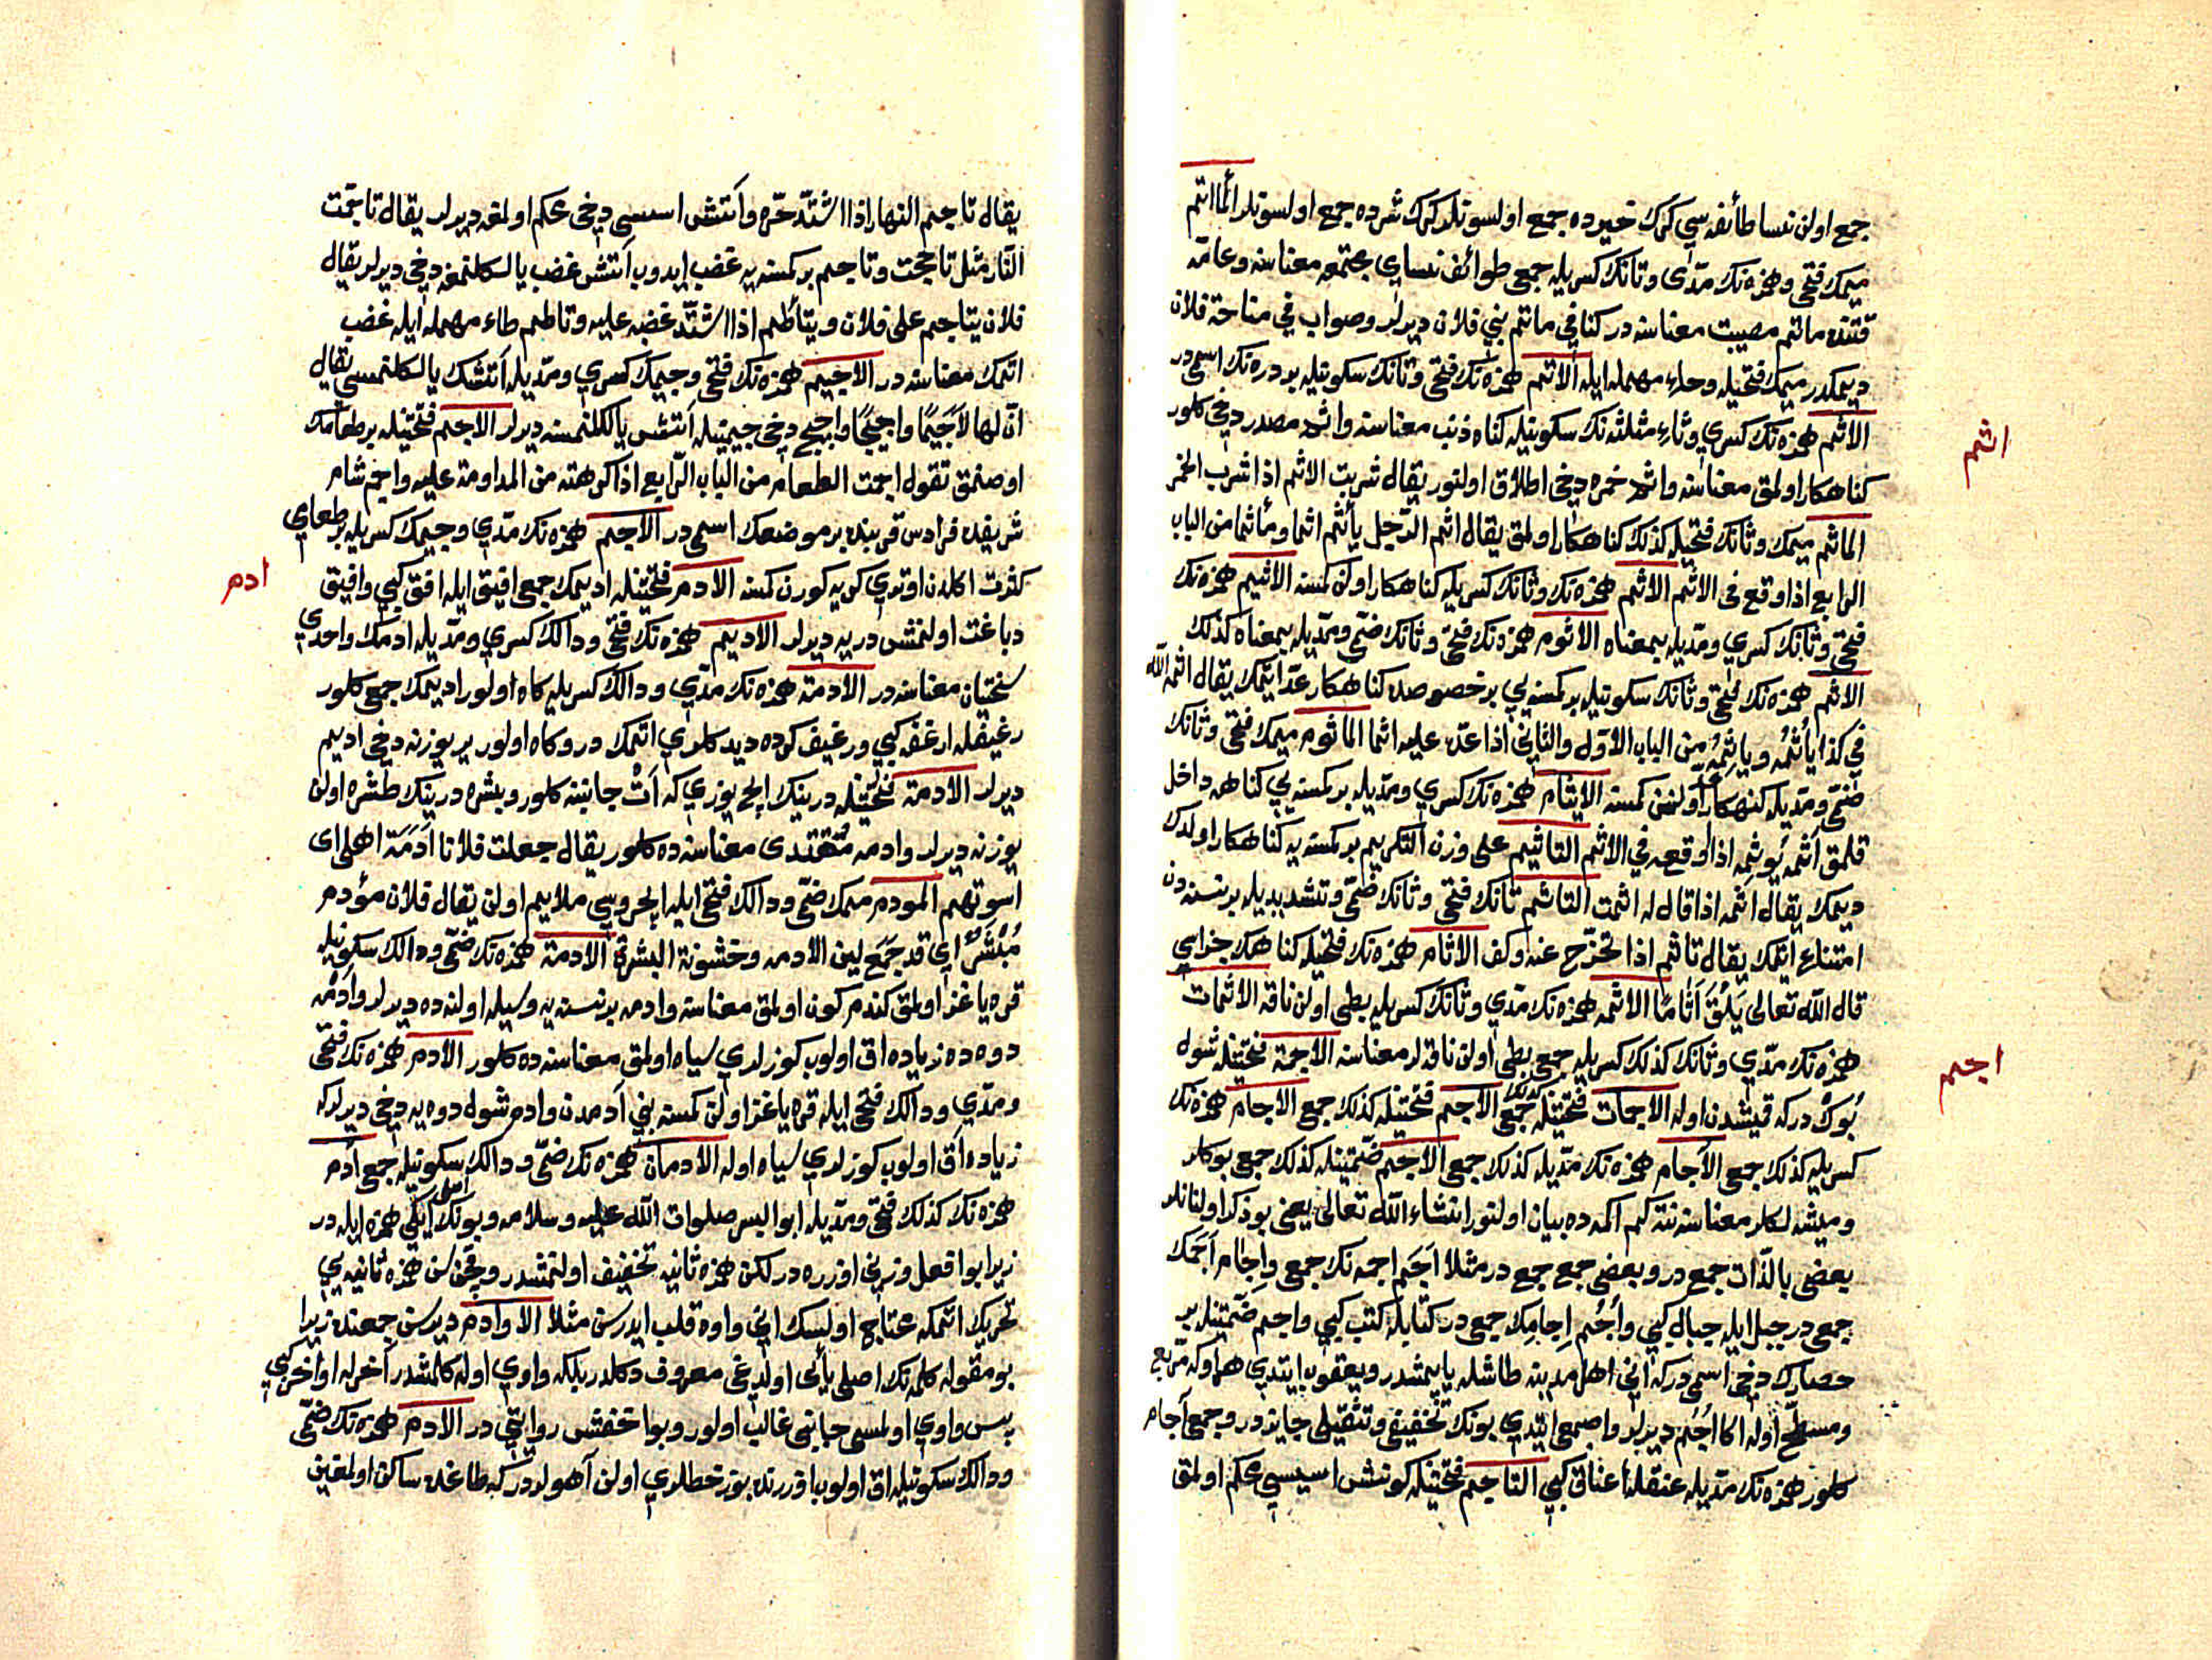 جمع اولن نسا طائفه سي كرك خيرده جمع اولسونلر كرك شرده جمع اولسونلر المأتم
ميمك فتحي وهمزه نك مدّى وتانك كسريله جمعي طوائف نساي مجتمعه معناسنه وعامّه
قتنده ماتم مصيبت معناسنه در كنا في ماتم بني فلان ديرلر وصواب في مناحة فلان
ديمكدر ميمك فتحيله وحاء مهمله ايله الاتم همزه نك فتحي وتانك سكونيله بر دره نك اسمى در
الاثم همزه نك كسري وثاء مثلثه نك سكونيله كناه ذنب معناسنه واثم مصدر دخي كلور
كناهكار اولمق معناسنه واثم خمره دخي اطلاق اولنور يقال شربت الاثم اذا شرب الخمر
المأثم ميمك وثانك فتحيله كذلك كناهكار اولمق يقال اثم الرّجل يأثم اثما ومأثما من الباب
الرابع اذا وقع في الاثم الاثم همزه نك وثانك كسريله كناهكار اولن كمسنه الاثيم همزه نك
فتحي وثانك كسري ومدّيله بمعناه الاثوم همزه نك فتحي وثانك ضمّي ومدّيله بمعناه كذلك
الاثم همزه نك فتحي وثانك سكونيله بر كمسنه يي بر خصوصده كناهكار عدّ ايتمك يقال اثمه الله
في كذا يأثمُه ويأثِمُه من الباب الاوّل والثاني اذا عدّه عليه اثما المأثوم ميمك فتحي وثانك
ضمّي ومدّيله كنهكار اولنن كمسنه الايثام همزه نك كسري ومدّيله بر كمسنه يي كناهه داخل
قلمق آثمه يُوثِمه اذا اوقعه في الاثم التاثيم على وزن التكريم بر كمسنه يه كناهكار اولدك
ديمك يقال اثمه اذا قال له اثمت التاثم تانك فتحي وثانك ضمّي وتشديديله بر نسنه دن
امتناع ايتمك يقال تاثم اذا تحرّج عنه وكف الاثام همزه نك فتحيله كناهك جزاسي
قال الله تعالى يَلْقَ اَثَامًا الاثمه همزه نك مدّي وثانك كسريله بطى اولن ناقه الاثمات
همزه نك مدّي وثانك كذلك كسريله جمعي بطى اولن ناقه لر معناسنه الاجمة فتحتيله شول
بُوكْ دركه قيشدن اوله الاجمات فتحتيله كذلك جمعي الاجم فتحتيله كذلك جمع الاجام همزه نك
كسريله كذلك جمعي الآجام همزه نك مدّيله كذلك جمعي الاجم ضمّتيله كذلك جمعي بوكلر
وميشه لكلر معناسنه نته كم اكمه ده بيان اولنور انشاء الله تعالى يعني بو ذكر اولنانلر
بعضى بالذّات جمع در وبعضى جمع جمع در مثلا اَجَم اجمه نك جمعي واِجَام اَجَمك
جمعي در جبل ايله جبال كبي وأُجُم اِجامك جمعي در كتابله كتب كبي واجم ضمّتيله بر
حصارك دخي اسمي در كه اني اهل مدينه طاشله ياپمشدر ويعقوب ايتدي هر اوكه مربّع
ومسطّح اوله اكا اُجُم ديرلر واصمعي ايتدي بونك تخفيفي وتثقيلي جايزدر وجمعي آجام
كلور همزه نك مدّيله عنقله اعناق كبي التاجم فتحتيله كونش اسيسي محكم اولمق
اثم
اجم
يقال تاجم النهار اذا اشتدّ حرّه وآتش اسسي دخي محكم اولمغه ديرلر يقال تاجّمت
النّار مثل تاججت وتاجم بر كمسنه يه غضب ايدوب آتش غضب يالكلنمغه دخي ديرلر يقال
فلان يتاجم على فلان ويتأطم اذا اشتدّ غضبه عليه وتاطم طاء مهمله ايله غضب
اتمك معناسنه در الاجيم همزه نك فتحي وجيمك كسري ومدّيله آتشك يالكلنمسي يقال
انّ لها لاَجَيمًا واجيجًا واجيج دخي جيمتيله آتش يالكلنمسنه ديرلر الاجم فتحتيله بر طعامك
اوصنمق تقول اجمت الطعام من الباب الرّابع اذا كرهته من المداومة عليه واجم شام
شريفده فرادس قربنده بر موضعك اسمي در الاجم همزه نك مدّي وجيمك كسريله بر طعامي
كثرت اكلدن اوتري كريه كورن كمسنه الادم فتحتيله اديمك جمعي افيق ايله افق كبي وافيق
دباغت اولنمش دريه ديرلر الاديم همزه نك فتحي ودالك كسري ومدّيله ادمك واحدي
سختيان معناسنه در الآدمة همزه نك مدّي ودالك كسريله كاه اولور اديمك جمعي كلور
رغيفله ارغفه كبي ورغيف كرده ديدكلري اتمك در وكاه اولور ير يوزنه دخي اديم
ديرلر الادمة فتحتيله درينك ايچ يوزي كه اَتْ جانبنه كلور وبشره درينك طشره اولن
يوزنه ديرلر وادمه مُقْتَدى معناسنه ده كلور يقال جعلت فلانا اَدَمَةَ اهلي اى
اسوتهم المودم ميمك ضمّي ودالك فتحي ايله ايچروسي ملايم اولن يقال فلان مؤدم
مُبْشَر اي قد جمع لين الادمه وخشونة البشرة الادمة همزه نك ضمّي ودالك سكونيله
قره ياغز اولمق كندم كون اولمق معناسنه وادمه بر نسنه يه وسيله اولنه ده ديرلر واُدْمه
دوه ده زياده اق اولوب كوزلري سياه اولمق معناسنه ده كلور الادم همزه نك فتحي
ومدّي ودالك فتحي ايله قره ياغز اولن كمسنه بني آدمدن وادم شول دوه يه دخي ديرلركه
زياده اق اولوب كوزلري سياه اوله الادمان همزه نك ضمّي ودالك سكونيله جمعي آدم
همزه نك كذلك فتحي ومدّيله ابو البشر صلوات الله عليه وسلامه وبونك اصلي ايكي همزه ايله در
زيرا بو افعل وزني اوزره در لكن همزه ثانيه تخفيف اولنمشدر وقچن كن همزه ثانيه يي
تحريك اتمكه محتاج اولسك اني واوه قلب ايدرسن مثلا الاوادم ديرسن جمعنده زيرا
بو مقوله كلمه نك اصلي يائى اولدغي معروف دكلدر بلكه واوي اوله كلمشدر آخر له اواخر كبي
پس واوي اولمسي جانبي غالب اولور وبو اخفش روايتي در الادم همزه نك ضمّي
ودالك سكونيله اق اولوب اوزرنده بوز خطلري اولن آهولر در كه طاغده ساكن اولمقين
ادم